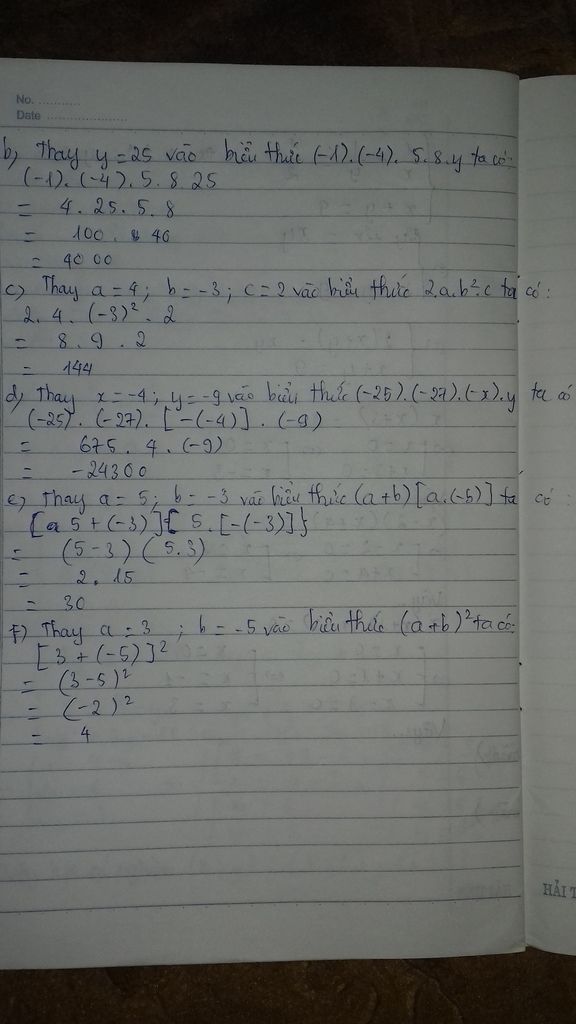 No. ...........
Date ......................
b) Thay y = 25 vào biểu thức (-1).(-4). 5.8.y ta có:
(-1).(-4).5.8.25
= 4.25.5.8
= 100 . 40
= 4000
c) Thay a = 4 ; b = -3 ; c = 2 vào biểu thức 2.a.b².c ta có :
2. 4. (-3)² . 2
= 8 . 9 . 2
= 144
d) Thay x = -4 ; y = -9 vào biểu thức (-25).(-27).(-x).y ta có
(-25) . (-27) . [-(-4)] . (-9)
= 675 . 4 . (-9)
= -24300
e) Thay a = 5 ; b = -3 vào biểu thức (a+b) [a.(-b)] ta có :
[5 + (-3)]{ 5 . [-(-3)]}
= (5-3) (5.3)
= 2 . 15
= 30
f) Thay a = 3 ; b = -5 vào biểu thức (a+b)² ta có:
[3 + (-5)]²
= (3-5)²
= (-2)²
= 4
HẢI T